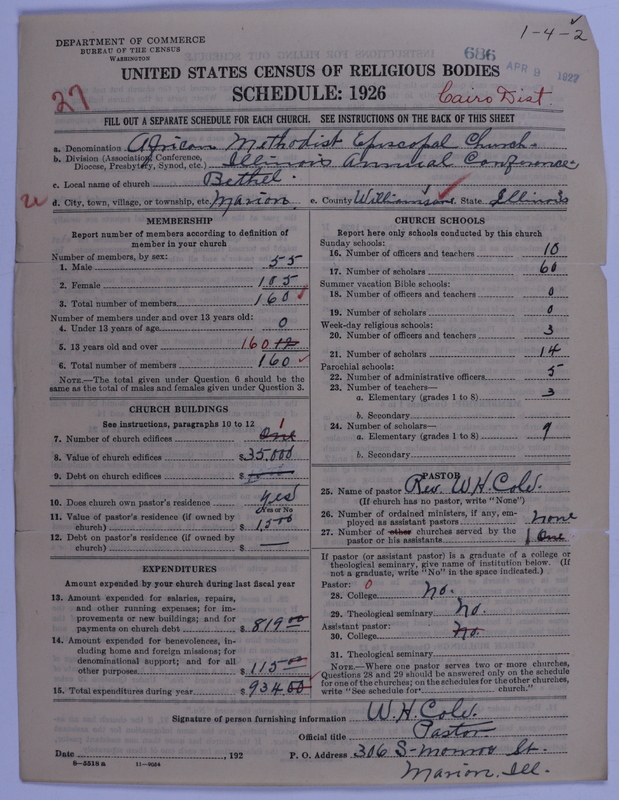 1-4-2
DEPARTMENT OF COMMERCE
BUREAU OF THE CENSUS
WASHINGTON
686
APR 9 1927
UNITED STATES CENSUS OF RELIGIOUS BODIES
SCHEDULE: 1926
27
Cairo Dist.
FILL OUT A SEPARATE SCHEDULE FOR EACH CHURCH. SEE INSTRUCTIONS ON THE BACK OF THIS SHEET
a. Denomination African Methodist Episcopal Church
b. Division (Association, Conference, Diocese, Presbytery, Synod, etc.) Illinois Annual Conference
c. Local name of church Bethel
d. City, town, village, or township, etc. Marion e. County Williamson f. State Illinois
MEMBERSHIP
Report number of members according to definition of
member in your church
Number of members, by sex:
1. Male 55
2. Female 105
3. Total number of members 160
Number of members under and over 13 years old:
4. Under 13 years of age 0
5. 13 years old and over 160 12
6. Total number of members 160
NOTE.—The total given under Question 6 should be the
same as the total of males and females given under Question 3.
CHURCH BUILDINGS
See instructions, paragraphs 10 to 12
7. Number of church edifices 1 One
8. Value of church edifices $35.000
9. Debt on church edifices $
10. Does church own pastor's residence yes
(Yes or No)
11. Value of pastor's residence (if owned by
church) $ 1,500
12. Debt on pastor's residence (if owned by
church) $ —
EXPENDITURES
Amount expended by your church during last fiscal year
13. Amount expended for salaries, repairs,
and other running expenses; for im-
provements or new buildings; and for
payments on church debt $ 819.00
14. Amount expended for benevolences, in-
cluding home and foreign missions; for
denominational support; and for all
other purposes $ 115.00
15. Total expenditures during year $ 934.00
CHURCH SCHOOLS
Report here only schools conducted by this church
Sunday schools:
16. Number of officers and teachers 10
17. Number of scholars 60
Summer vacation Bible schools:
18. Number of officers and teachers 0
19. Number of scholars 0
Week-day religious schools:
20. Number of officers and teachers 3
21. Number of scholars 14
Parochial schools:
22. Number of administrative officers 5
23. Number of teachers—
a. Elementary (grades 1 to 8) 3
b. Secondary
24. Number of scholars—
a. Elementary (grades 1 to 8) 9
b. Secondary
PASTOR
25. Name of pastor Rev. W.H. Cole.
(If church has no pastor, write "None")
26. Number of ordained ministers, if any, em-
ployed as assistant pastors none
27. Number of other churches served by the
pastor or his assistants 1 One
If pastor (or assistant pastor) is a graduate of a college or
theological seminary, give name of institution below. (If
not a graduate, write "No" in the space indicated.)
Pastor: 0
28. College No.
29. Theological seminary No.
Assistant pastor:
30. College No.
31. Theological seminary
NOTE.—Where one pastor serves two or more churches,
Questions 28 and 29 should be answered only on the schedule
for one of the churches; on the schedules for the other churches,
write "See schedule for church."
Signature of person furnishing information W.H. Cole.
Official title Pastor
Date , 192 P. O. Address 306 S- Monroe St.
8—5518 a 11—9024 Marion, Ill.